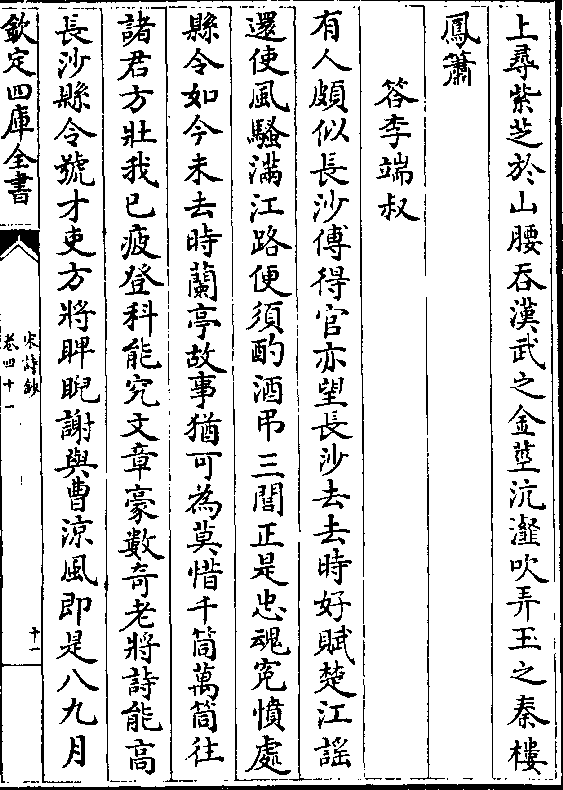 上尋紫芝於山腰吞漢武之金莖沆瀣吹弄玉之秦樓
鳳簫
答李端叔
有人頗似長沙傅得官亦望長沙去去時好賦楚江謡
還使風騷滿江路便須酌酒弔三閭正是忠魂寃憤處
縣令如今未去時蘭亭故事猶可為莫惜千筒萬筒往
諸君方壯我已疲登科能究文章豪數奇老將詩能高
長沙縣令號才吏方將睥睨謝與曹涼風即是八九月
欽定四庫全書
宋詩鈔
卷四十一
十一